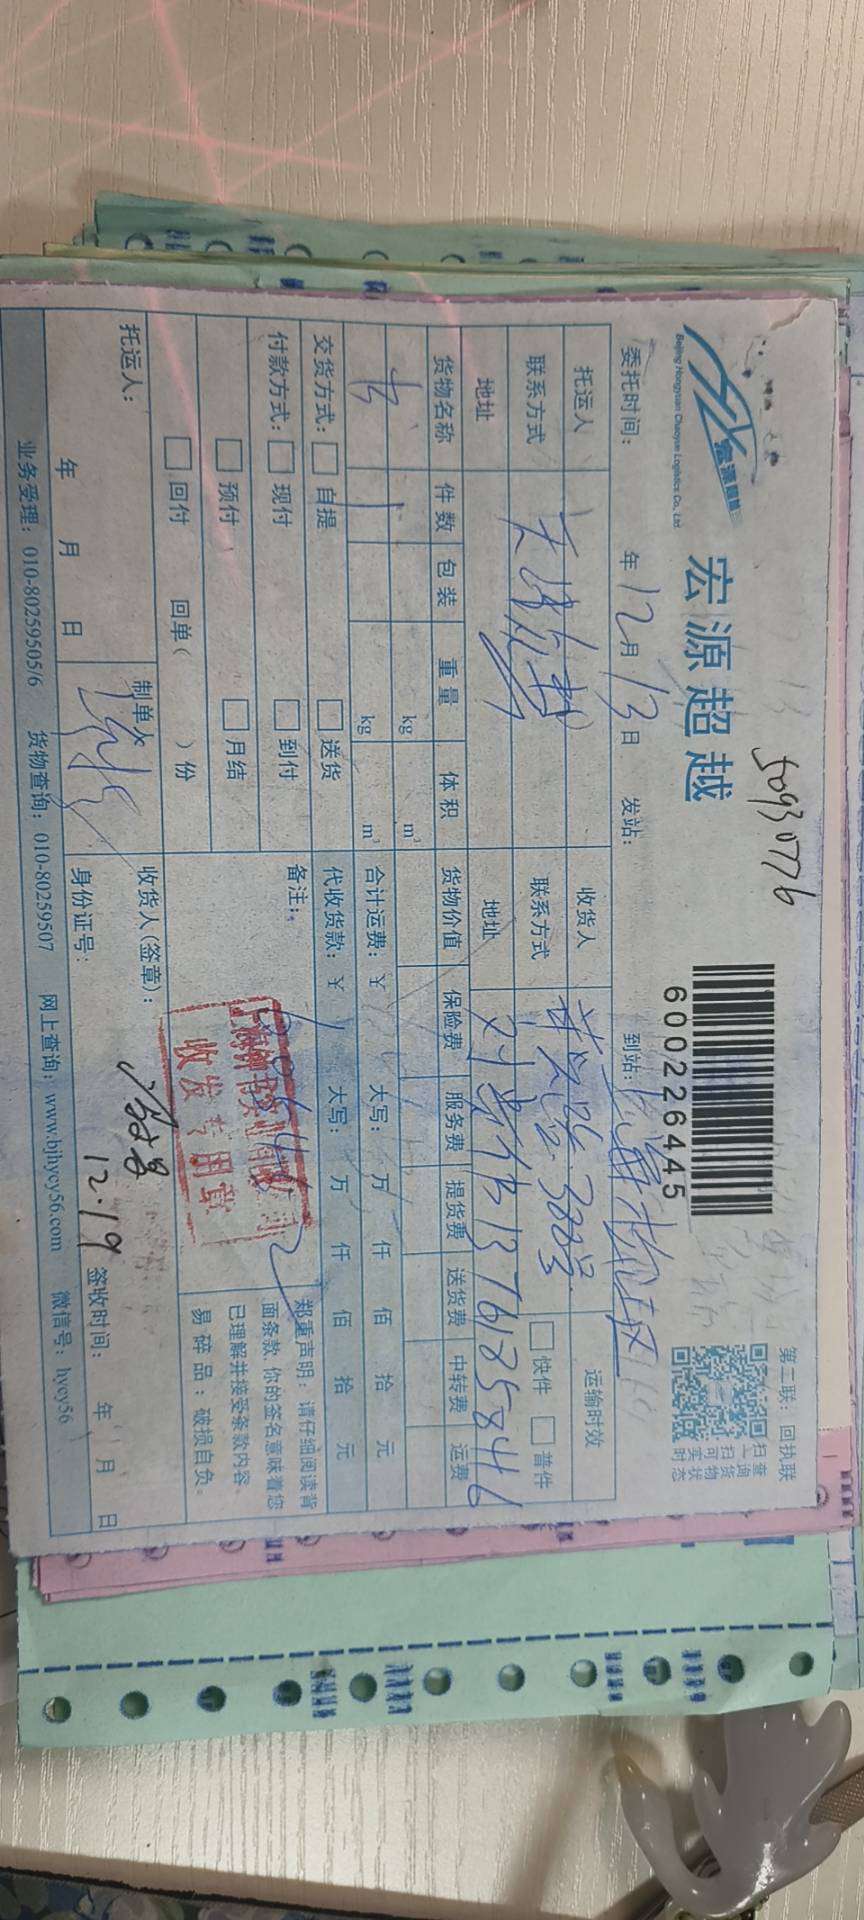 50930776
宏源超越
宏源超越
Beijing Hongyuan Chaoyue Logistics Co., Ltd
600226445
第二联：回执联
扫一扫可实时
查询货物状态
委托时间： 年 12月 13日 发站： 到站：上海
托运人 收货人 运输时效
联系方式 联系方式 300号 快件 普件
地址 地址 13761258446
货物名称 件数 包装 重量 体积 货物价值 保险费 服务费 提货费 送货费 中转费 运费
书 1 kg m³
kg m³ 合计运费：￥ 大写： 万 仟 佰 拾 元
交货方式： 自提 送货 代收货款：￥ 大写： 万 仟 佰 拾 元
付款方式： 现付 到付 备注：
预付 月结
回付 回单（ ）份
郑重声明：请仔细阅读背
面条款,你的签名意味着您
已理解并接受条款内容
易碎品：破损自负。
收发专用章
托运人： 制单人 收货人(签章)：
年 月 日 身份证号： 12.19 签收时间： 年 月 日
业务受理：010-80259505/6 货物查询：010-80259507 网上查询：www.bjhycy56.com 微信号：hycy56